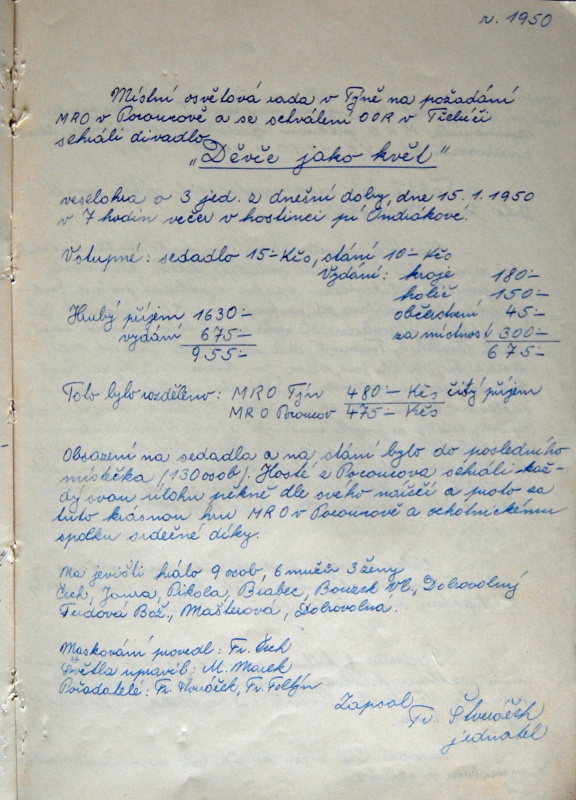 r. 1950
Místní osvětová rada v Týně na požádání
MRO v Pocoucově a se schválení OOR v Třebíči
sehráli divadlo
"Děvče jako květ"
veselohra o 3 jed. z dnešní doby, dne 15.1.1950
v 7 hodin večer v hostinci pí Ondrákové.
Vstupné: sedadlo 15·- Kčs, stání 10·- Kčs
Vydání: kroje 180·-
holič 150·-
Hrubý příjem 1630·- občerstvení 45·-
vydání 675·- za místnost 300·-
955·- 675·-
Toto bylo rozděleno: MRO Týn 480·- Kčs čistý příjem
MRO Pocoucov 475·- Kčs
Obsazení na sedadla a na stání bylo do posledního
místečka (130 osob). Hosté z Pocoucova sehráli kaž-
dý svou úlohu pěkně dle svého nářečí a proto za
tuto krásnou hru MRO v Pocoucově a ochotnickému
spolku srdečné díky.
Na jevišti hrálo 9 osob, 6 mužů 3 ženy
Čech, Janra, Pikola, Brabec, Bouzek Vl., Dobrovolný
Ferdová Bož., Mašterová, Dobrovolná.
Maskování provedl: Fr. Čech
Světla upravil: M. Marek
Pořadatelé: Fr. Štveráček, Fr. Foltýn
Zapsal
Fr. Štveráček
jednatel